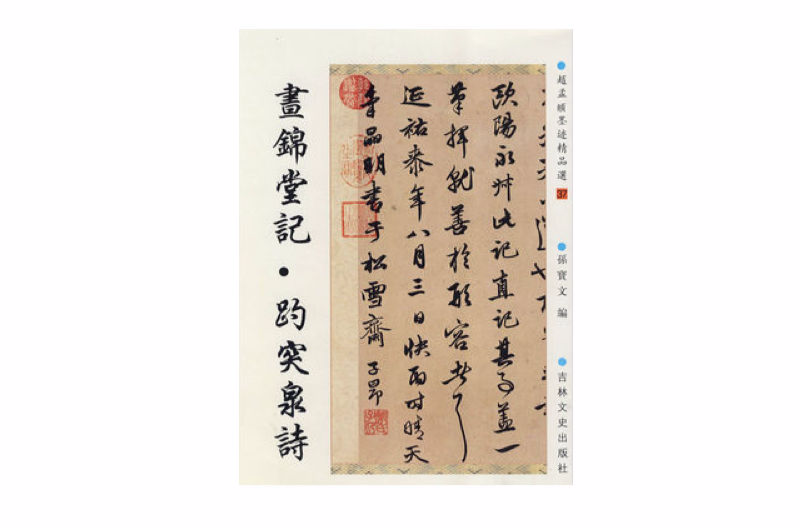 趙孟頫墨迹精品選 37
孫寶文 編
吉林文史出版社
歐陽永叔此記直記其事蓋一
筆揮就善於形容者也
延祐柒年八月三日快雨时晴天
氣晶明書于松雪齋 子昂
晝錦堂記・趵突泉詩